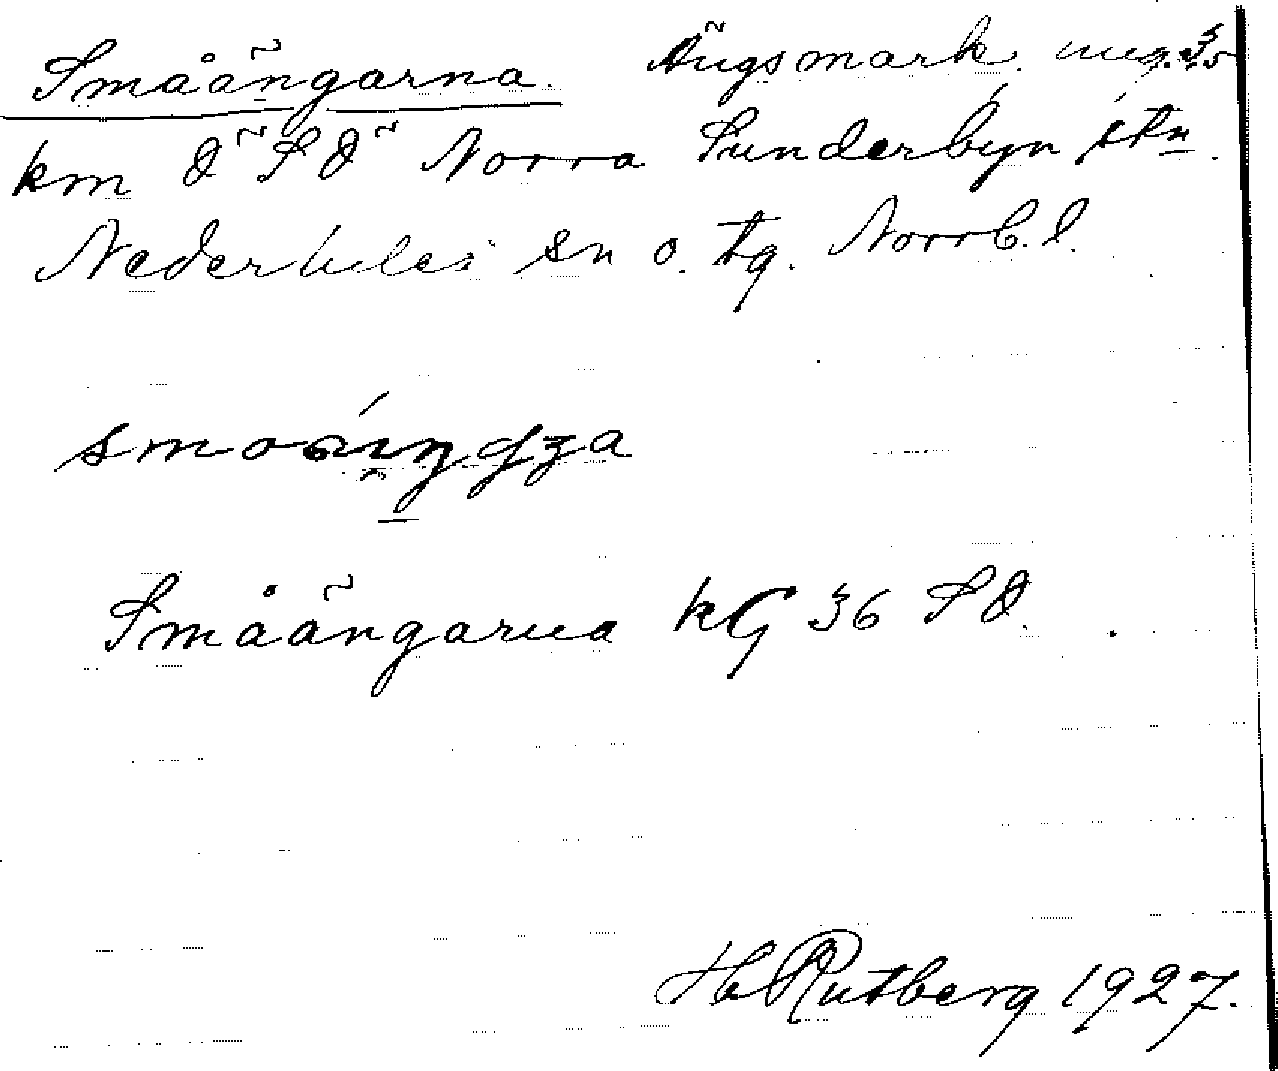 Småängarna. Ängsmark. ung. 3,5
km Ö SÖ Norra Sunderbyn stn.
Nederluleå sn o. tg. Norrb. l.
Småängarna kG 36 SÖ.
H Rutberg 1927.